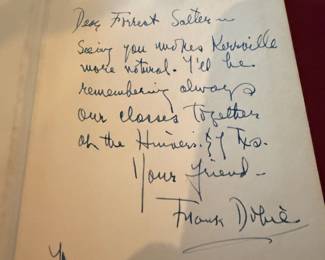 Dear Forrest Salter —
Seeing you makes Kerrville
more natural. I'll be
remembering always
our classes together
at the Univers. of Tex.
Your friend —
Frank Dobie